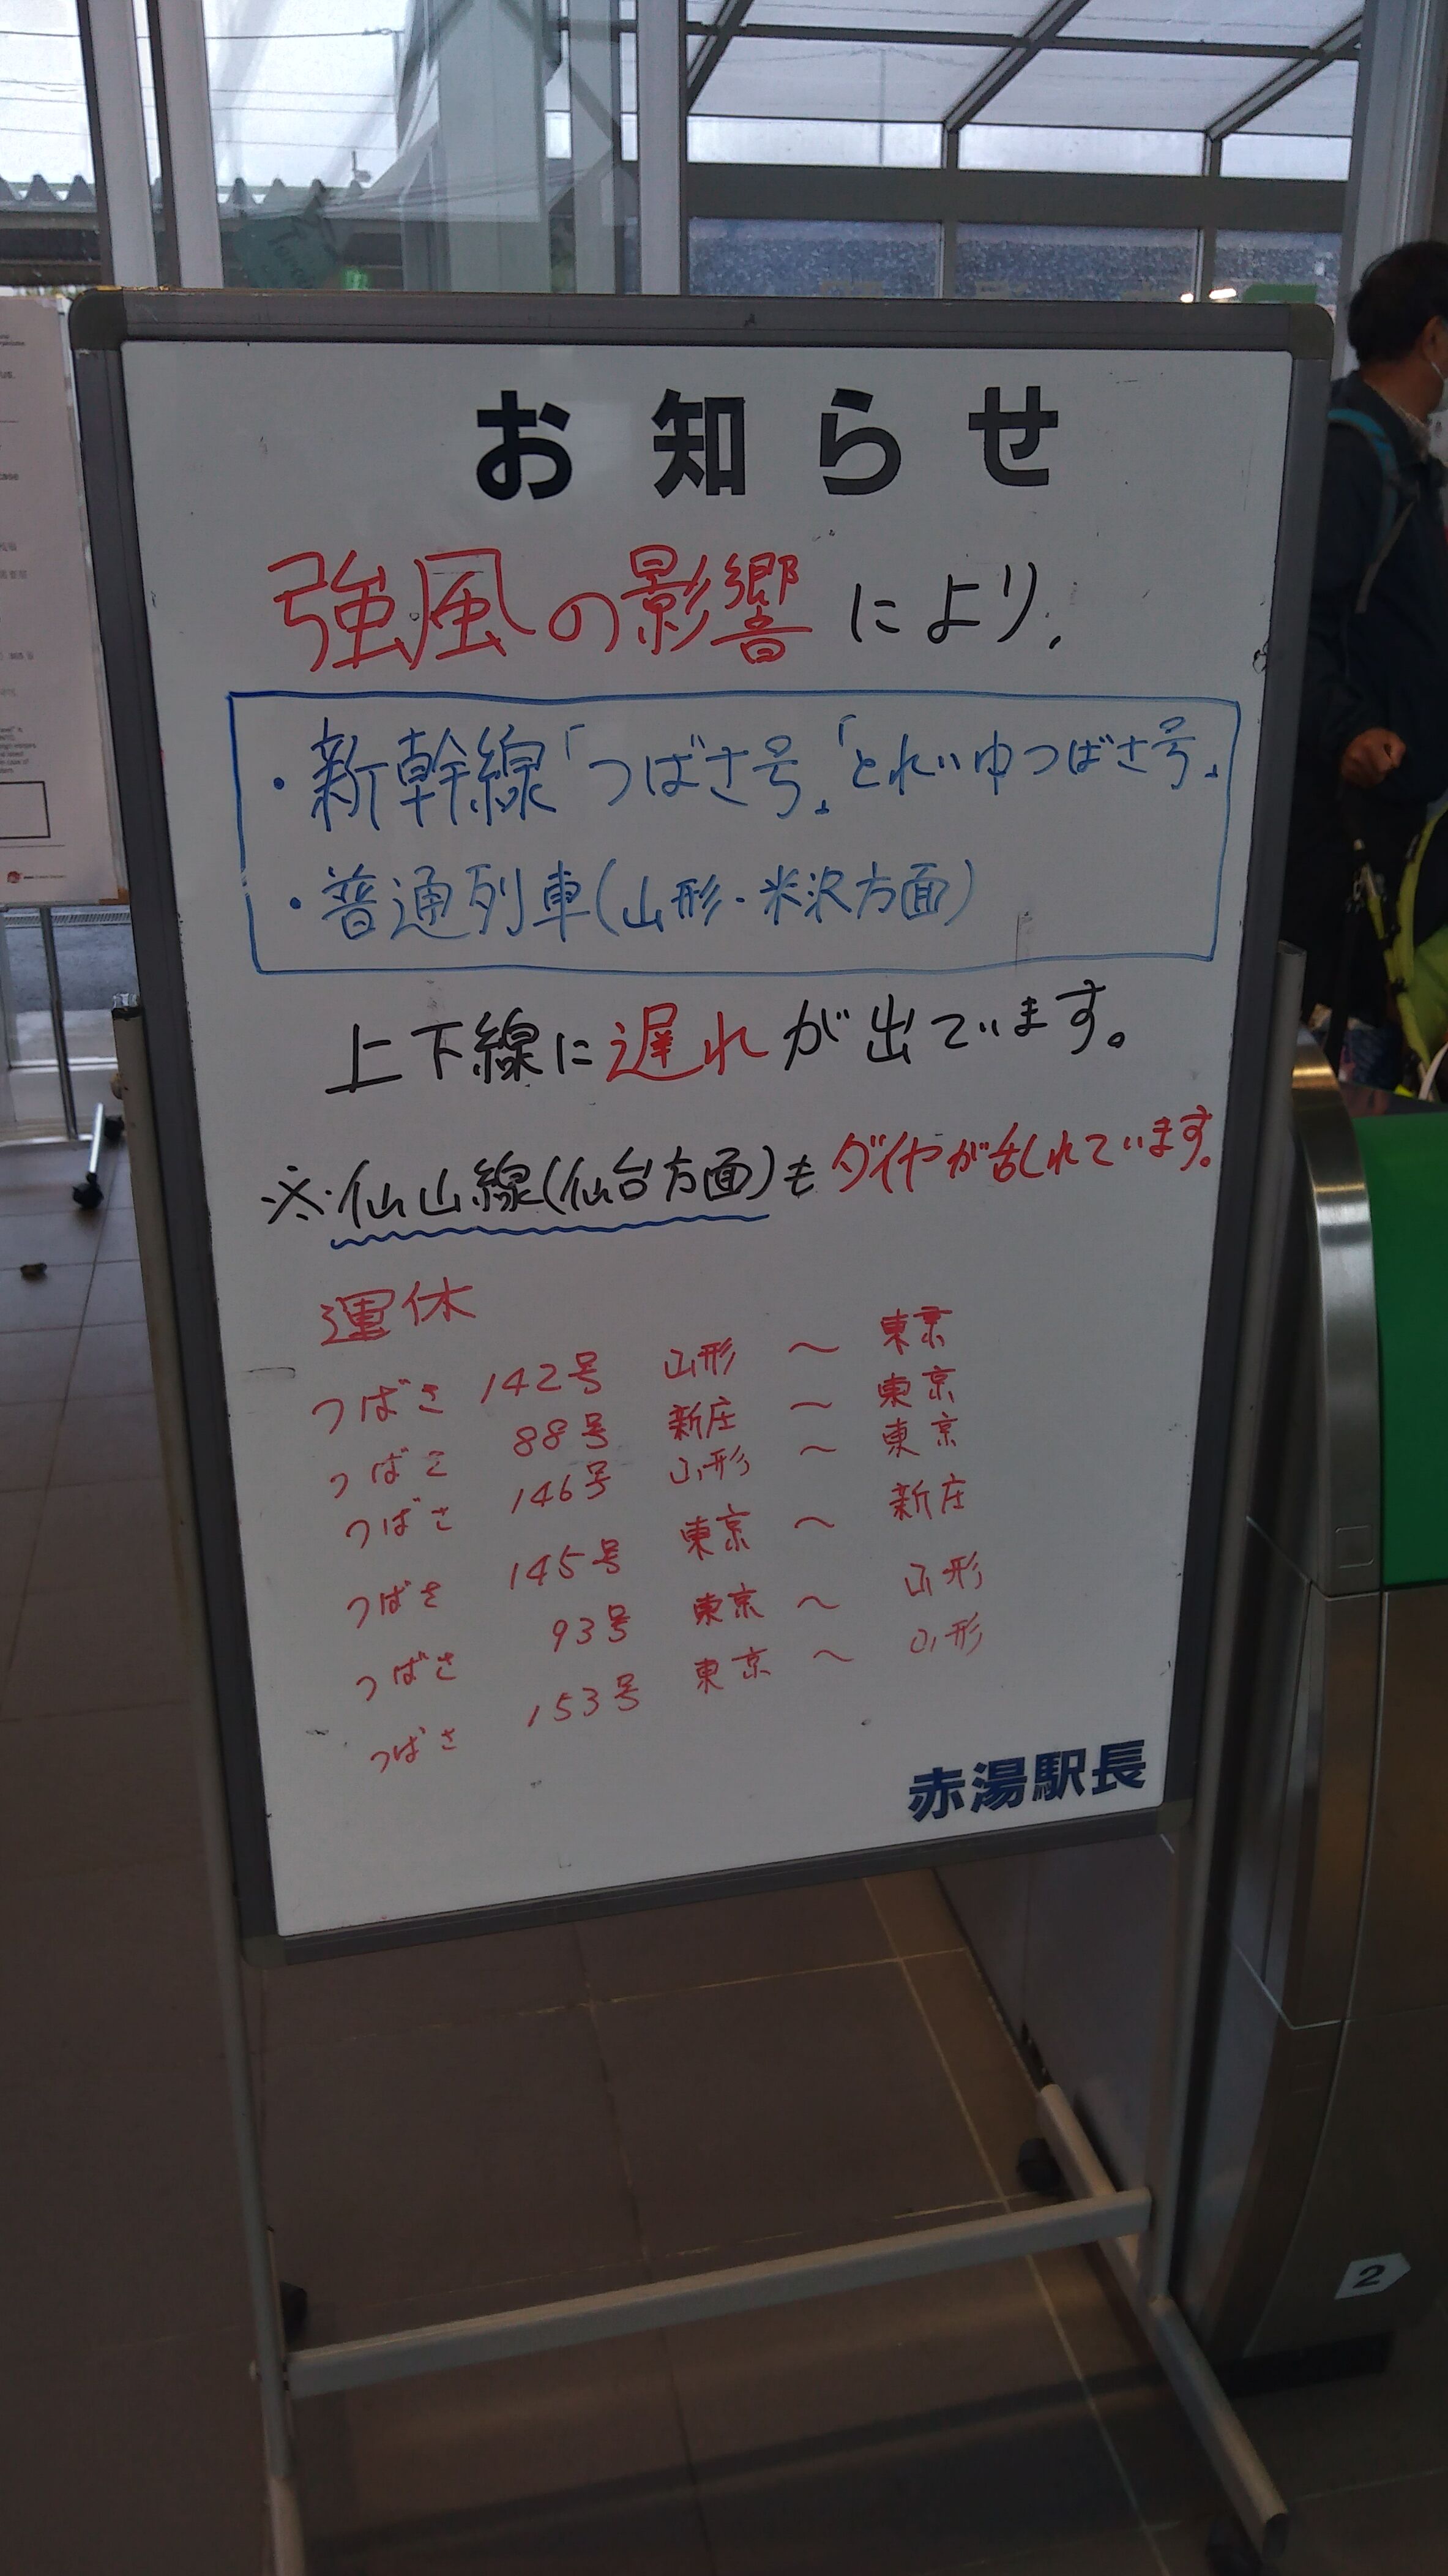 お知らせ
強風の影響により、
・新幹線「つばさ号」「とれいゆつばさ号」
・普通列車(山形・米沢方面)
上下線に遅れが出ています。
※仙山線(仙台方面)もダイヤが乱れています。
運休
つばさ 142号 山形 〜 東京
つばさ 88号 新庄 〜 東京
つばさ 146号 山形 〜 東京
つばさ 145号 東京 〜 新庄
つばさ 93号 東京 〜 山形
つばさ 153号 東京 〜 山形
赤湯駅長
2